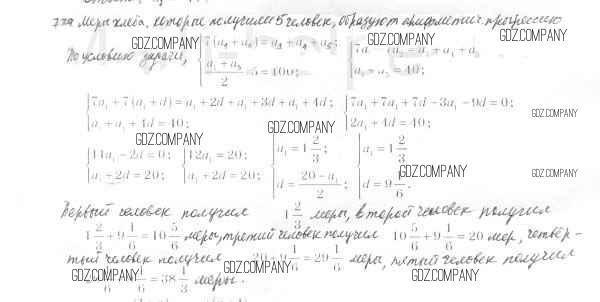 722 Меры хлеба, которые получили 5 человек, образуют арифметич. прогрессию
GDZ.COMPANY GDZ.COMPANY
По условию задачи, { 7(a₁+a₂)=a₃+a₄+a₅; (a₁+a₅)/2 · 5=100; { 7a
a₁+a₅=40;
{ 7a₁+7(a₁+d)=a₁+2d+a₁+3d+a₁+4d; a₁+a₁+4d=40; { 7a₁+7a₁+7d-3a₁-9d=0; 2a₁+4d=40; GDZ.COMPANY
GDZ.COMPANY GDZ.COMPANY
{ 11a₁-2d=0; a₁+2d=20; { 12a₁=20; a₁+2d=20; { a₁=1 2/3; d=(20-a₁)/2; { a₁=1 2/3; d=9 1/6.
GDZ.COMPANY GDZ.COMPANY
Первый человек получил 1 2/3 меры, второй человек получил
1 2/3+9 1/6=10 5/6 меры, третий человек получил 10 5/6+9 1/6=20 мер, четвёр-
тый человек получил 20+9 1/6=29 1/6 меры, пятый человек получил
GDZ.COMPANY GDZ.COMPANY GDZ.COMPANY
=38 1/3 меры.